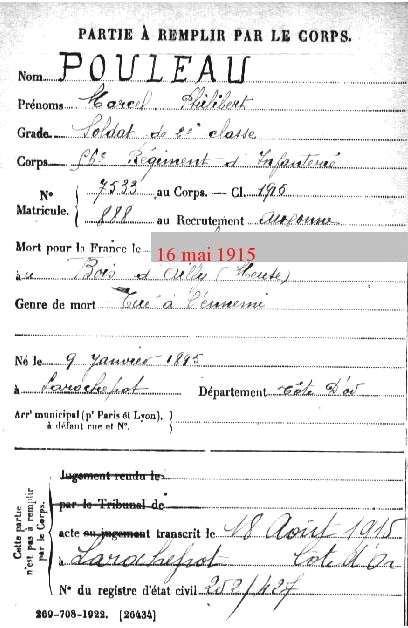 PARTIE À REMPLIR PAR LE CORPS.
Nom POULEAU
Prénoms Marcel Philibert
Grade Soldat de 2e classe
Corps 56e Régiment d'Infanterie
N° Matricule. { 7533 au Corps. — Cl. 1915
888 au Recrutement Auxonne
Mort pour la France le 16 mai 1915
à Bois d'Ailly (Meuse)
Genre de mort Tué à l'ennemi
Né le 9 Janvier 1895
à Larochepot Département Côte d'Or
Arrt municipal (pr Paris et Lyon), à défaut rue et N°.
Cette partie n'est pas à remplir par le Corps.
Jugement rendu le
par le Tribunal de
acte ou jugement transcrit le 18 Août 1915
à Larochepot Côte d'Or
N° du registre d'état civil 252/427
269-708-1922. [26434]